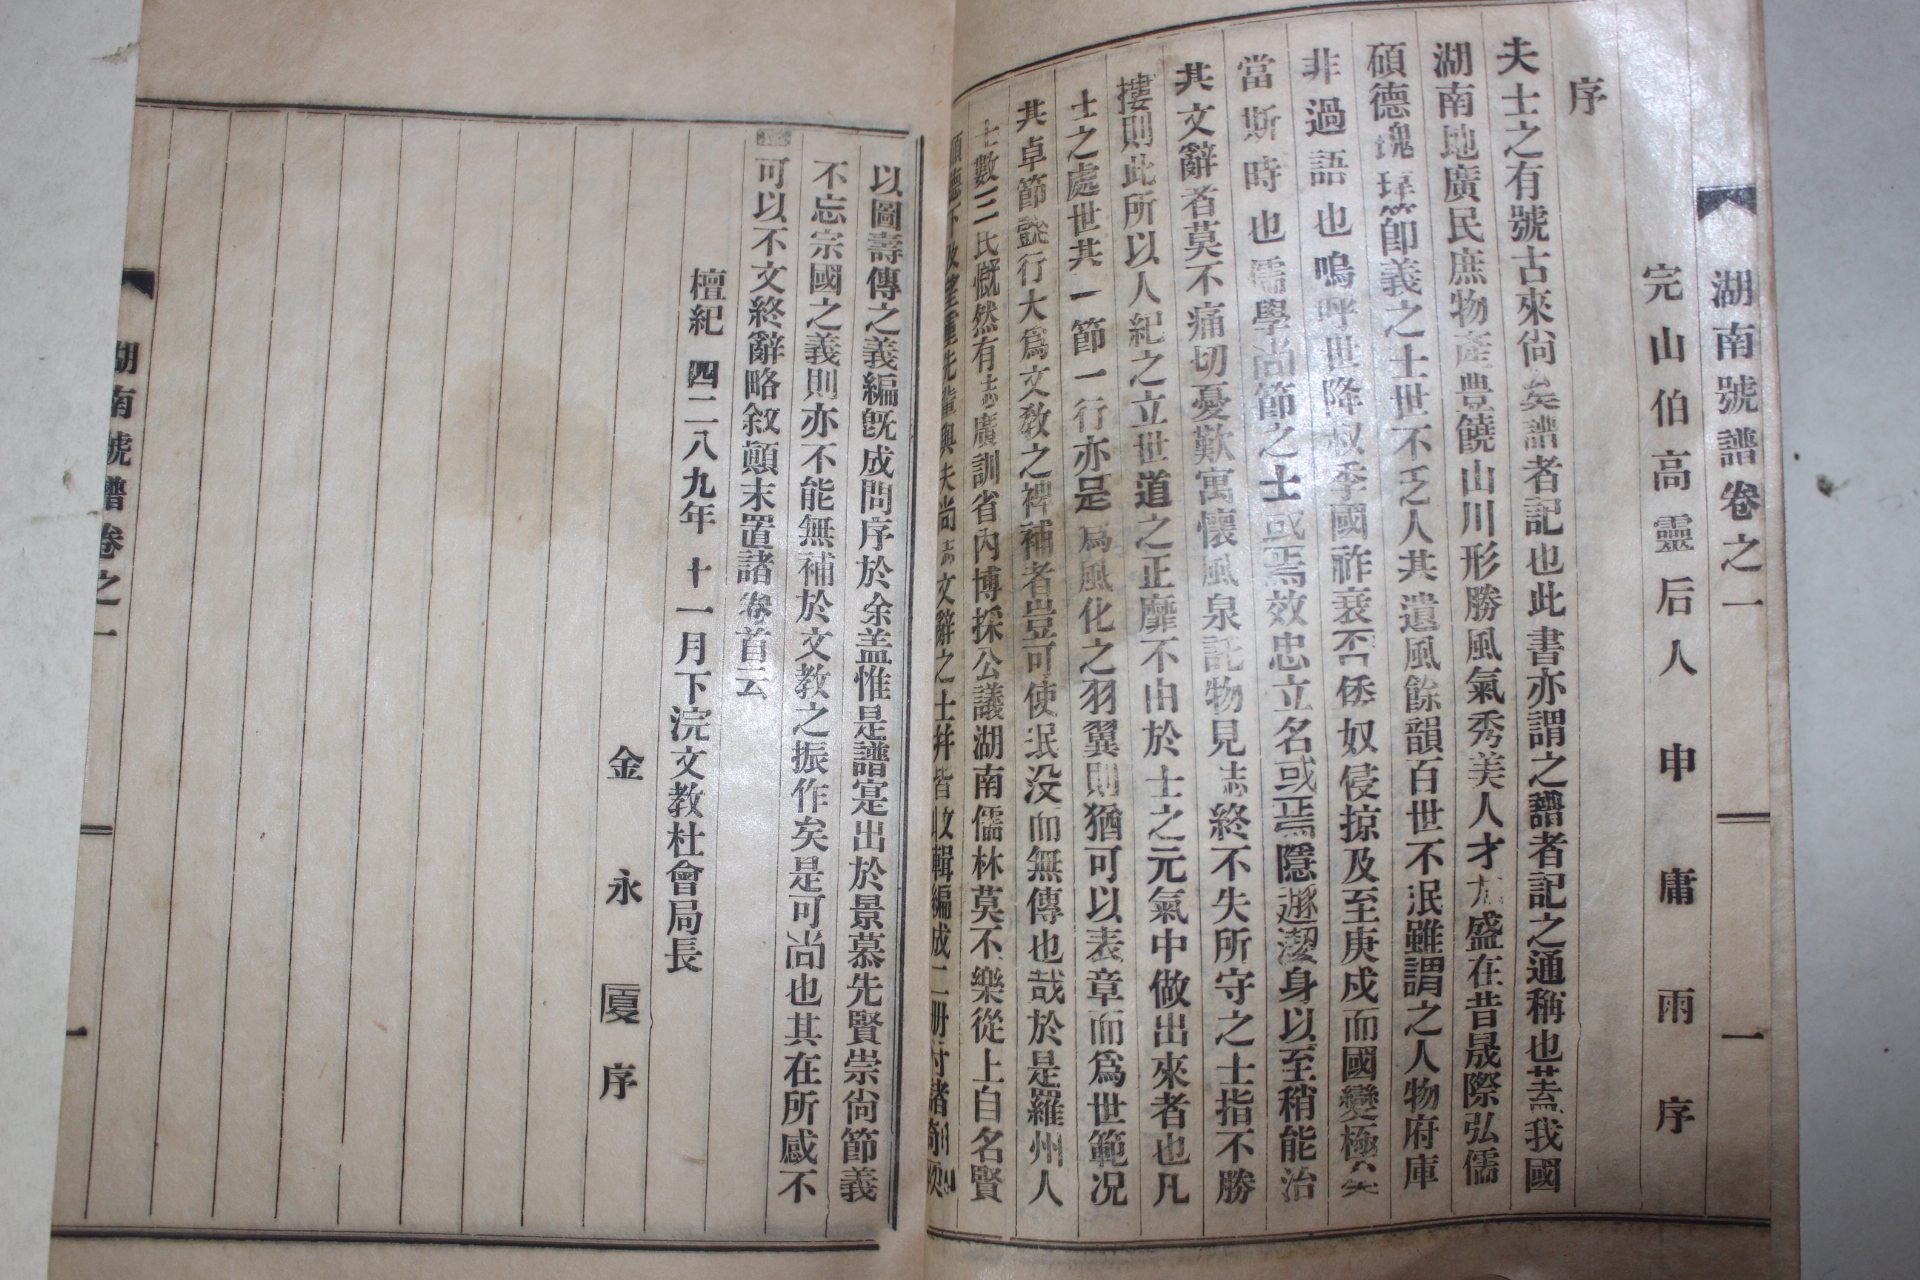 湖南號譜卷之一 一
完山伯高靈后人申庸雨序
序
夫士之有號古來尙矣譜者記也此書亦謂之譜者記之通稱也盖我國
湖南地廣民庶物產豊饒山川形勝風氣秀美人才尤盛在昔晟際弘儒
碩德瑰瑋節義之士世不乏人其遺風餘韻百世不泯雖謂之人物府庫
非過語也嗚呼世降叔季國祚衰否倭奴侵掠及至庚戍而國變極矣
當斯時也儒學尚節之士或焉效忠立名或焉隱遯潔身以至稍能治
其文辭者莫不痛切憂歎寓懷風泉託物見志終不失所守之士指不勝
摟則此所以人紀之立世道之正靡不由於士之元氣中做出來者也凡
士之處世其一節一行亦足爲風化之羽翼則猶可以表章而爲世範况
其卓節懿行大爲文敎之裨補者豈可使泯没而無傳也哉於是羅州人
士數三氏慨然有志廣訓省內博採公議湖南儒林莫不樂從上自名賢
碩德下 先輩與夫尚志文辭之士幷皆收輯編成二册付諸
以圖壽傳之義編旣成問序於余盖惟是譜寔出於景慕先賢崇尙節義
不忘宗國之義則亦不能無補於文教之振作矣是可尚也其在所感不
可以不文終辭略叙顚末置諸卷首云
檀紀 四二八九年 十一月下浣文教杜會局長
金永厦序
湖南號譜卷之一 一